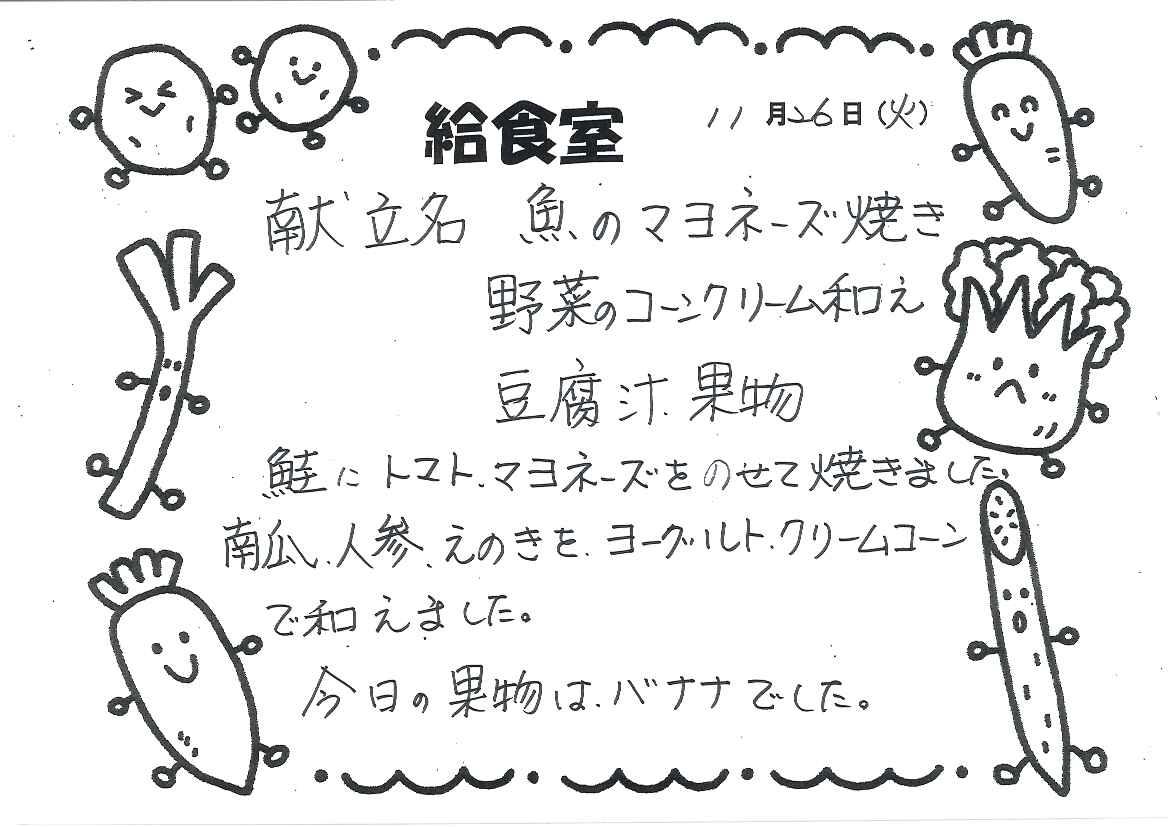 給食室 11月26日(火)
献立名 魚のマヨネーズ焼き
野菜のコーンクリーム和え
豆腐汁.果物
鮭にトマト.マヨネーズをのせて焼きました。
南瓜.人参.えのきを.ヨーグルト.クリームコーン
で和えました。
今日の果物は.バナナでした。